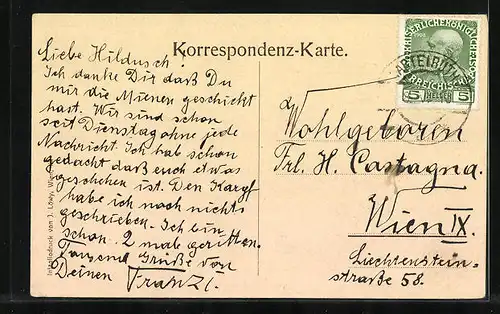 Korrespondenz-Karte.
Liebe Hildusch!
Ich danke Dir daß Du
mir die Münen geschickt
hast. Wir sind schon
seit Dienstag ohne jede
Nachricht. Ich hab schon
gedacht daß euch etwas
geschehen ist. Den
habe ich noch nichts
geschrieben. Ich bin
schon 2 mal geritten.
Tausend Grüße von
Deinen Franzl.
Wohlgeboren
Frl. H. Castagna.
Wien IX.
Liechtenstein-
straße 58.
5 5
von J. Löwy, Wien